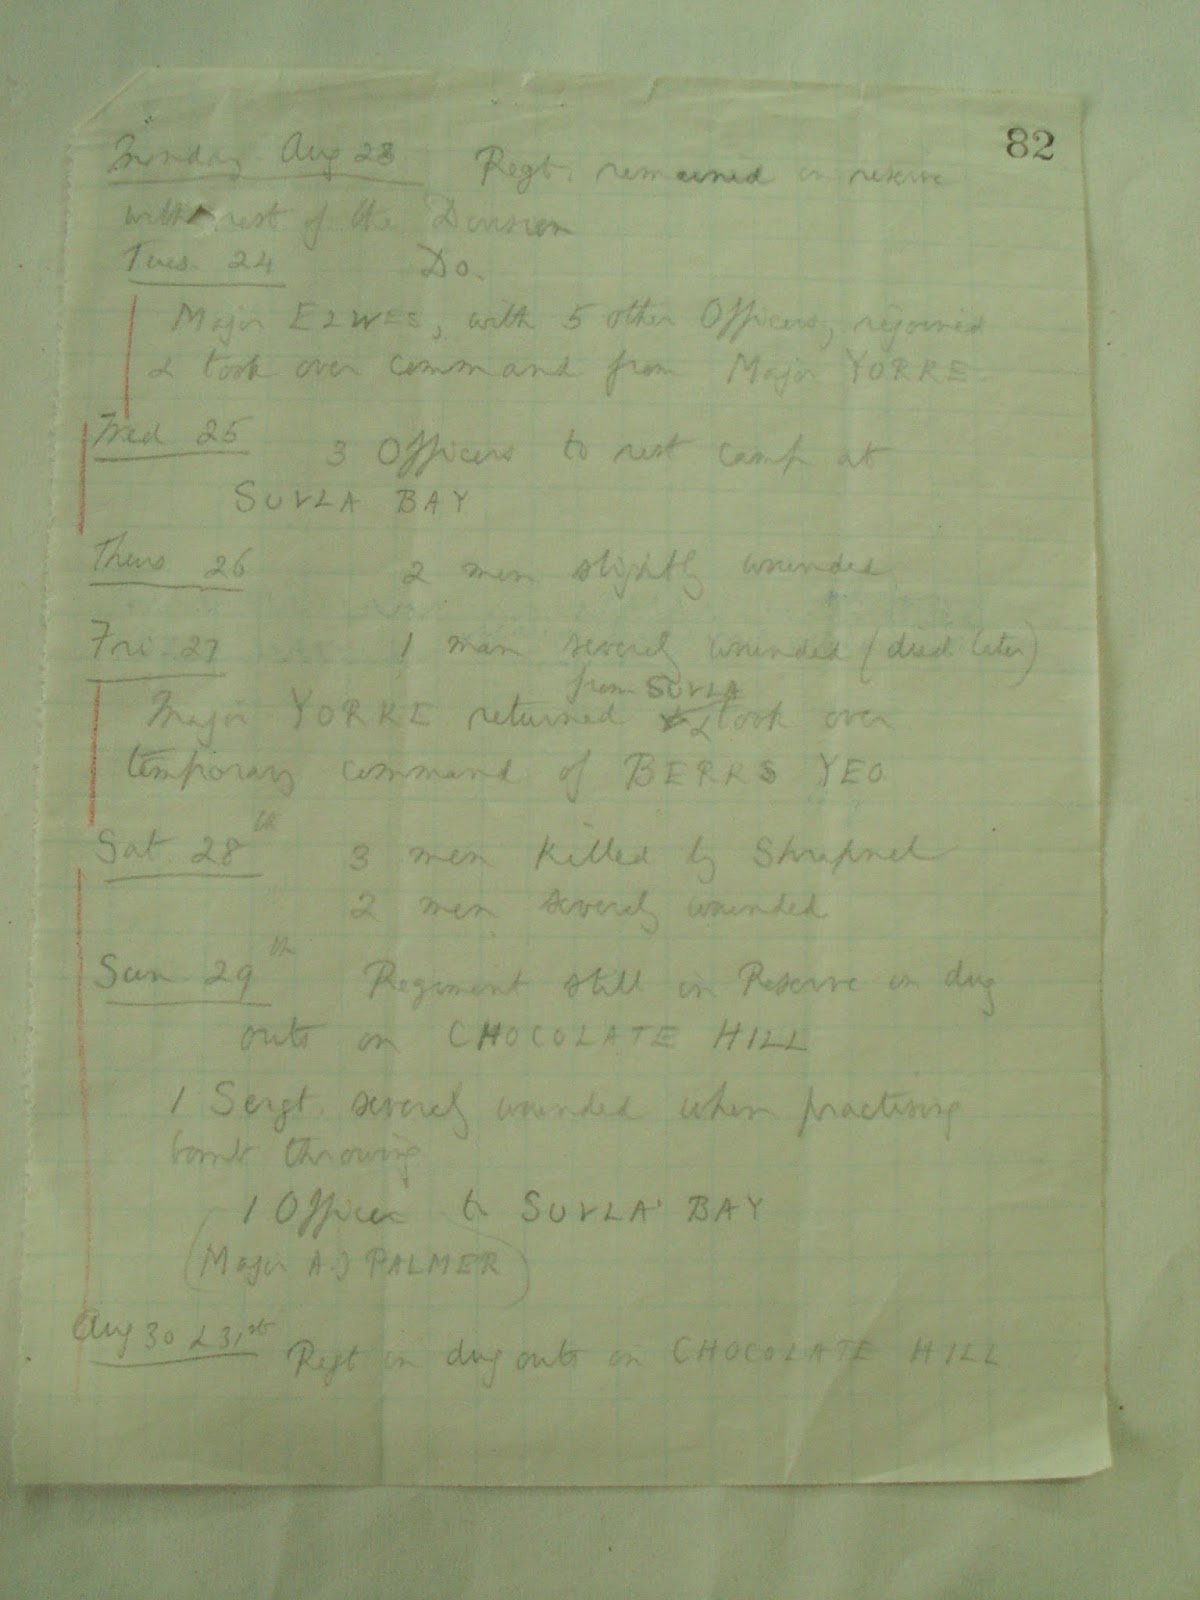 82
Monday Aug 23 Regt. remained in reserve
with rest of the Division
Tues. 24 Do.
Major ELWES, with 5 other Officers, rejoined
& took over command from Major YORKE
Wed 25 3 Officers to rest camp at
SUVLA BAY
Thurs 26 2 men slightly wounded
Fri 27 1 man severely wounded (died later)
from SUVLA
Major YORKE returned & took over
temporary command of BERKS YEO
Sat 28th 3 men killed by Shrapnel
2 men severely wounded
Sun 29th Regiment still in Reserve in dug
outs on CHOCOLATE HILL
1 Sergt. severely wounded when practising
bomb throwing
1 Officer to SUVLA BAY
(Major A.J PALMER)
Aug 30 & 31st Regt in dug outs on CHOCOLATE HILL